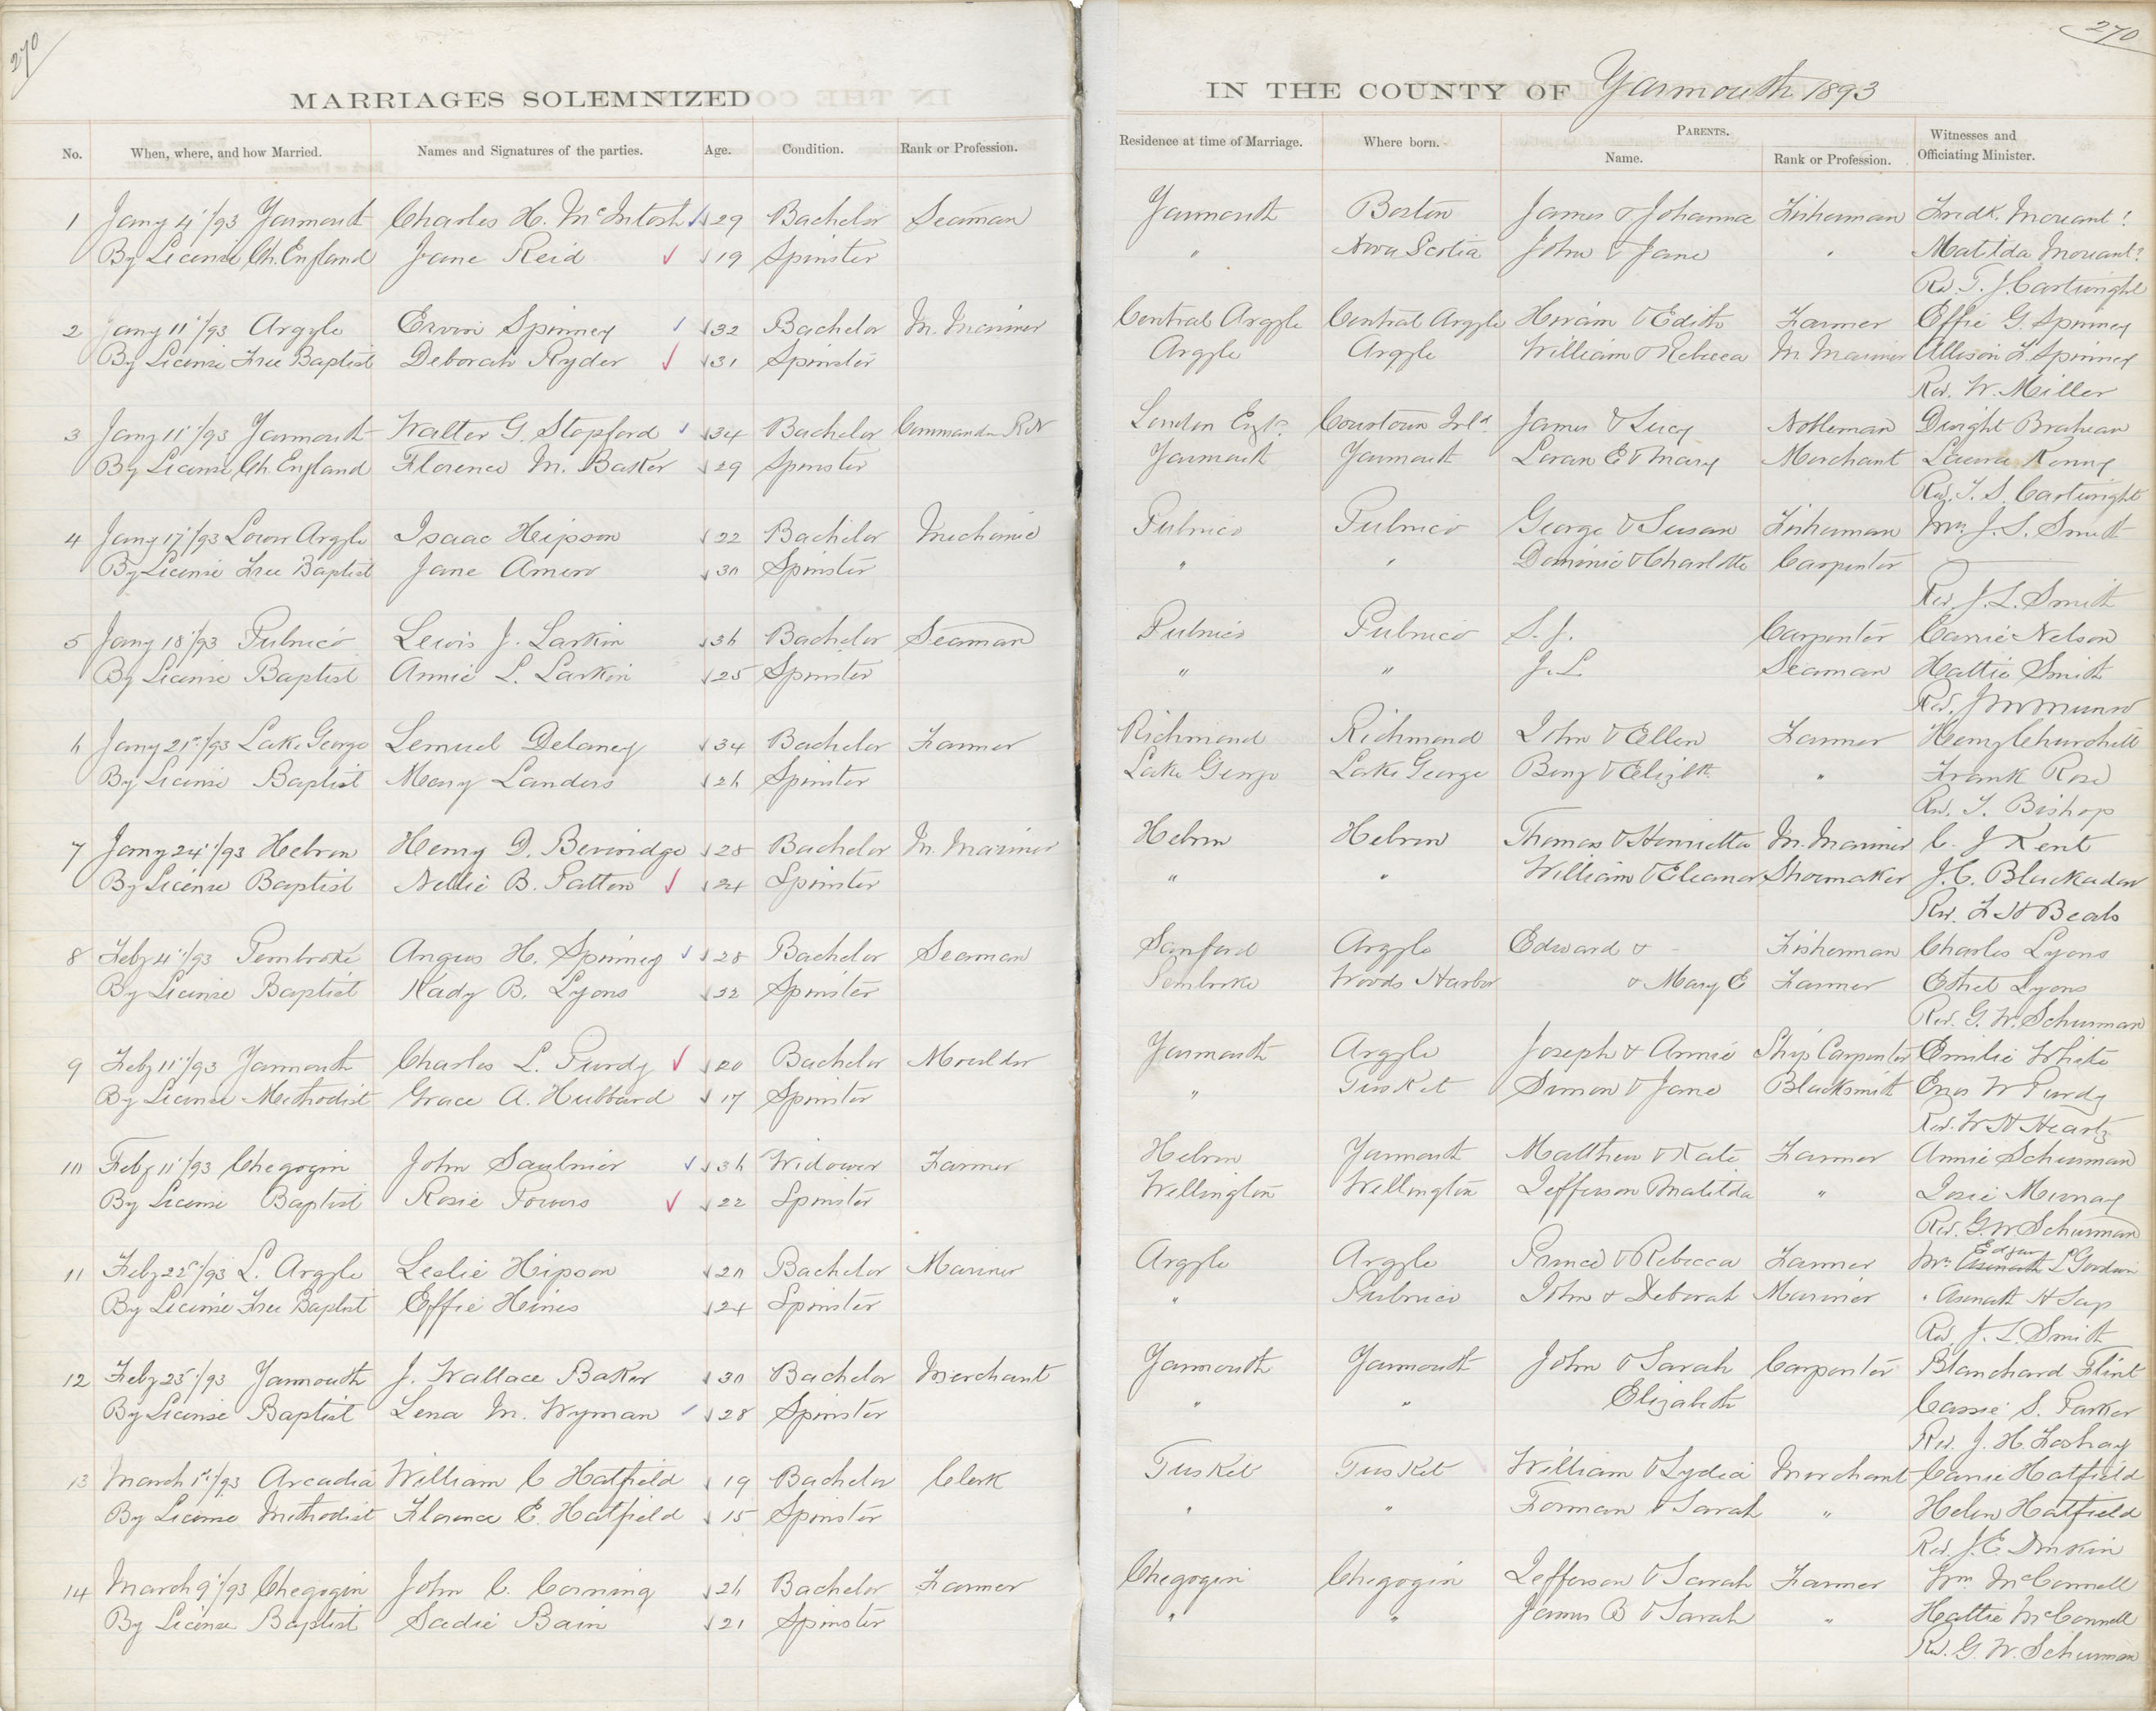 270
270
MARRIAGES SOLEMNIZED
IN THE COUNTY OF Yarmouth 1893
No. When, where, and how Married. Names and Signatures of the parties. Age. Condition. Rank or Profession. Residence at time of Marriage. Where born. PARENTS. Name. Rank or Profession. Witnesses and Officiating Minister.
1 Jany 4"/93 Yarmouth Charles H. McIntosh 29 Bachelor Seaman Yarmouth Boston James & Johanna Fisherman Fredk. Morant?
By License Ch. England Jane Reid 19 Spinster " Nova Scotia John & Jane " Matilda Morant?
Rd. T. J. Cartwright
2 Jany 11"/93 Argyle Ervin Spinney 32 Bachelor M. Mariner Central Argyle Central Argyle Hiram & Edith Farmer Effie G. Spinney
By License Free Baptist Deborah Ryder 31 Spinster Argyle Argyle William & Rebecca M Mariner Allison L. Spinney
Rev. W. Miller
3 Jany 11"/93 Yarmouth Walter G. Stopford 34 Bachelor Commander RN London Engd. Courtown Irld. James & Lucy Nobleman Dwight
By License Ch. England Florence M. Baker 29 Spinster Yarmouth Yarmouth Loran E & Mary Merchant Laura Kenny
Rev. T. S. Cartwright
4 Jany 17"/93 Lower Argyle Isaac Hipson 22 Bachelor Mechanic Pubnico Pubnico George & Susan Fisherman Mrs. J. L. Smith
By License Free Baptist Jane Amero 30 Spinster " " Dominic & Charlotte Carpenter
Rev. J. L. Smith
5 Jany 18"/93 Pubnico Lewis J. Larkin 36 Bachelor Seaman Pubnico Pubnico S. J. Carpenter Carrie Nelson
By License Baptist Annie L. Larkin 25 Spinster " " J. L Seaman Hattie Smith
Rev. J W Munro
6 Jany 21st/93 Lake George Lemuel Delaney 34 Bachelor Farmer Richmond Richmond John & Ellen Farmer Henry Churchill
By License Baptist Mary Landers 26 Spinster Lake George Lake George Benj & Elizth. " Frank Rose
Rev. T. Bishop
7 Jany 24"/93 Hebron Henry D. Beveridge 28 Bachelor M. Mariner Hebron Hebron Thomas & Henrietta M. Mariner C. J Kent
By License Baptist Nellie B. Patten 24 Spinster " " William & Eleanor Shoemaker J. C. Blackadar
Rev. F H Beals
8 Feby 4"/93 Pembroke Angus H. Spinney 28 Bachelor Seaman Sanford Argyle Edward & - Fisherman Charles Lyons
By License Baptist Kady B. Lyons 22 Spinster Pembroke Woods Harbor & Mary E Farmer Ethel Lyons
Rev. G. W. Schurman
9 Feby 11"/93 Yarmouth Charles L. Purdy 20 Bachelor Moulder Yarmouth Argyle Joseph & Annie Ship Carpenter Emilie White
By License Methodist Grace A. Hubbard 17 Spinster " Tusket Simon & Jane Blacksmith Enos W Purdy
Rev. W H Heartz
10 Feby 11"/93 Chegogin John Saulnier 36 Widower Farmer Hebron Yarmouth Matthew & Kate Farmer Annie Schurman
By License Baptist Rosie Powers 22 Spinster Wellington Wellington Jefferson Matilda " Josie Murray
Rev. G. W Schurman
11 Feby 22nd/93 L. Argyle Leslie Hipson 20 Bachelor Mariner Argyle Argyle Prince & Rebecca Farmer Mrs Edgar L Goodwin
By License Free Baptist Effie Hines 24 Spinster " Pubnico John & Deborah Mariner " Asenath H
Rev. J. L. Smith
12 Feby 25"/93 Yarmouth J. Wallace Baker 30 Bachelor Merchant Yarmouth Yarmouth John & Sarah Carpenter Blanchard Flint
By License Baptist Lena M. Wyman 28 Spinster " " Elizabeth Cassie S. Parker
Rev. J. H. Foshay
13 March 1st/93 Arcadia William C Hatfield 19 Bachelor Clerk Tusket Tusket William & Lydia Merchant Carrie Hatfield
By License Methodist Florence E. Hatfield 15 Spinster " " Forman & Sarah " Helen Hatfield
Rev J. E. Donkin
14 March 9"/93 Chegogin John C. Corning 26 Bachelor Farmer Chegogin Chegogin Jefferson & Sarah Farmer Wm. McConnell
By License Baptist Sadie Bain 21 Spinster " " James B & Sarah " Hattie McConnell
Rd. G. W. Schurman